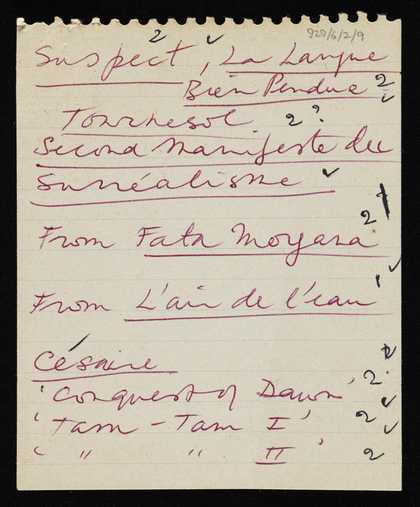 929/6/2/9
2 ✓
Suspect, La Langue
Bien Pendue 2 ✓
Tournesol 2?
Second Manifeste du
Surréalisme ✓
2
From Fata Morgana
✓
From L'air de l'eau
Césaire
'Conquest of Dawn' 2 ✓
'Tam-Tam I' 2 ✓
' " " II' 2